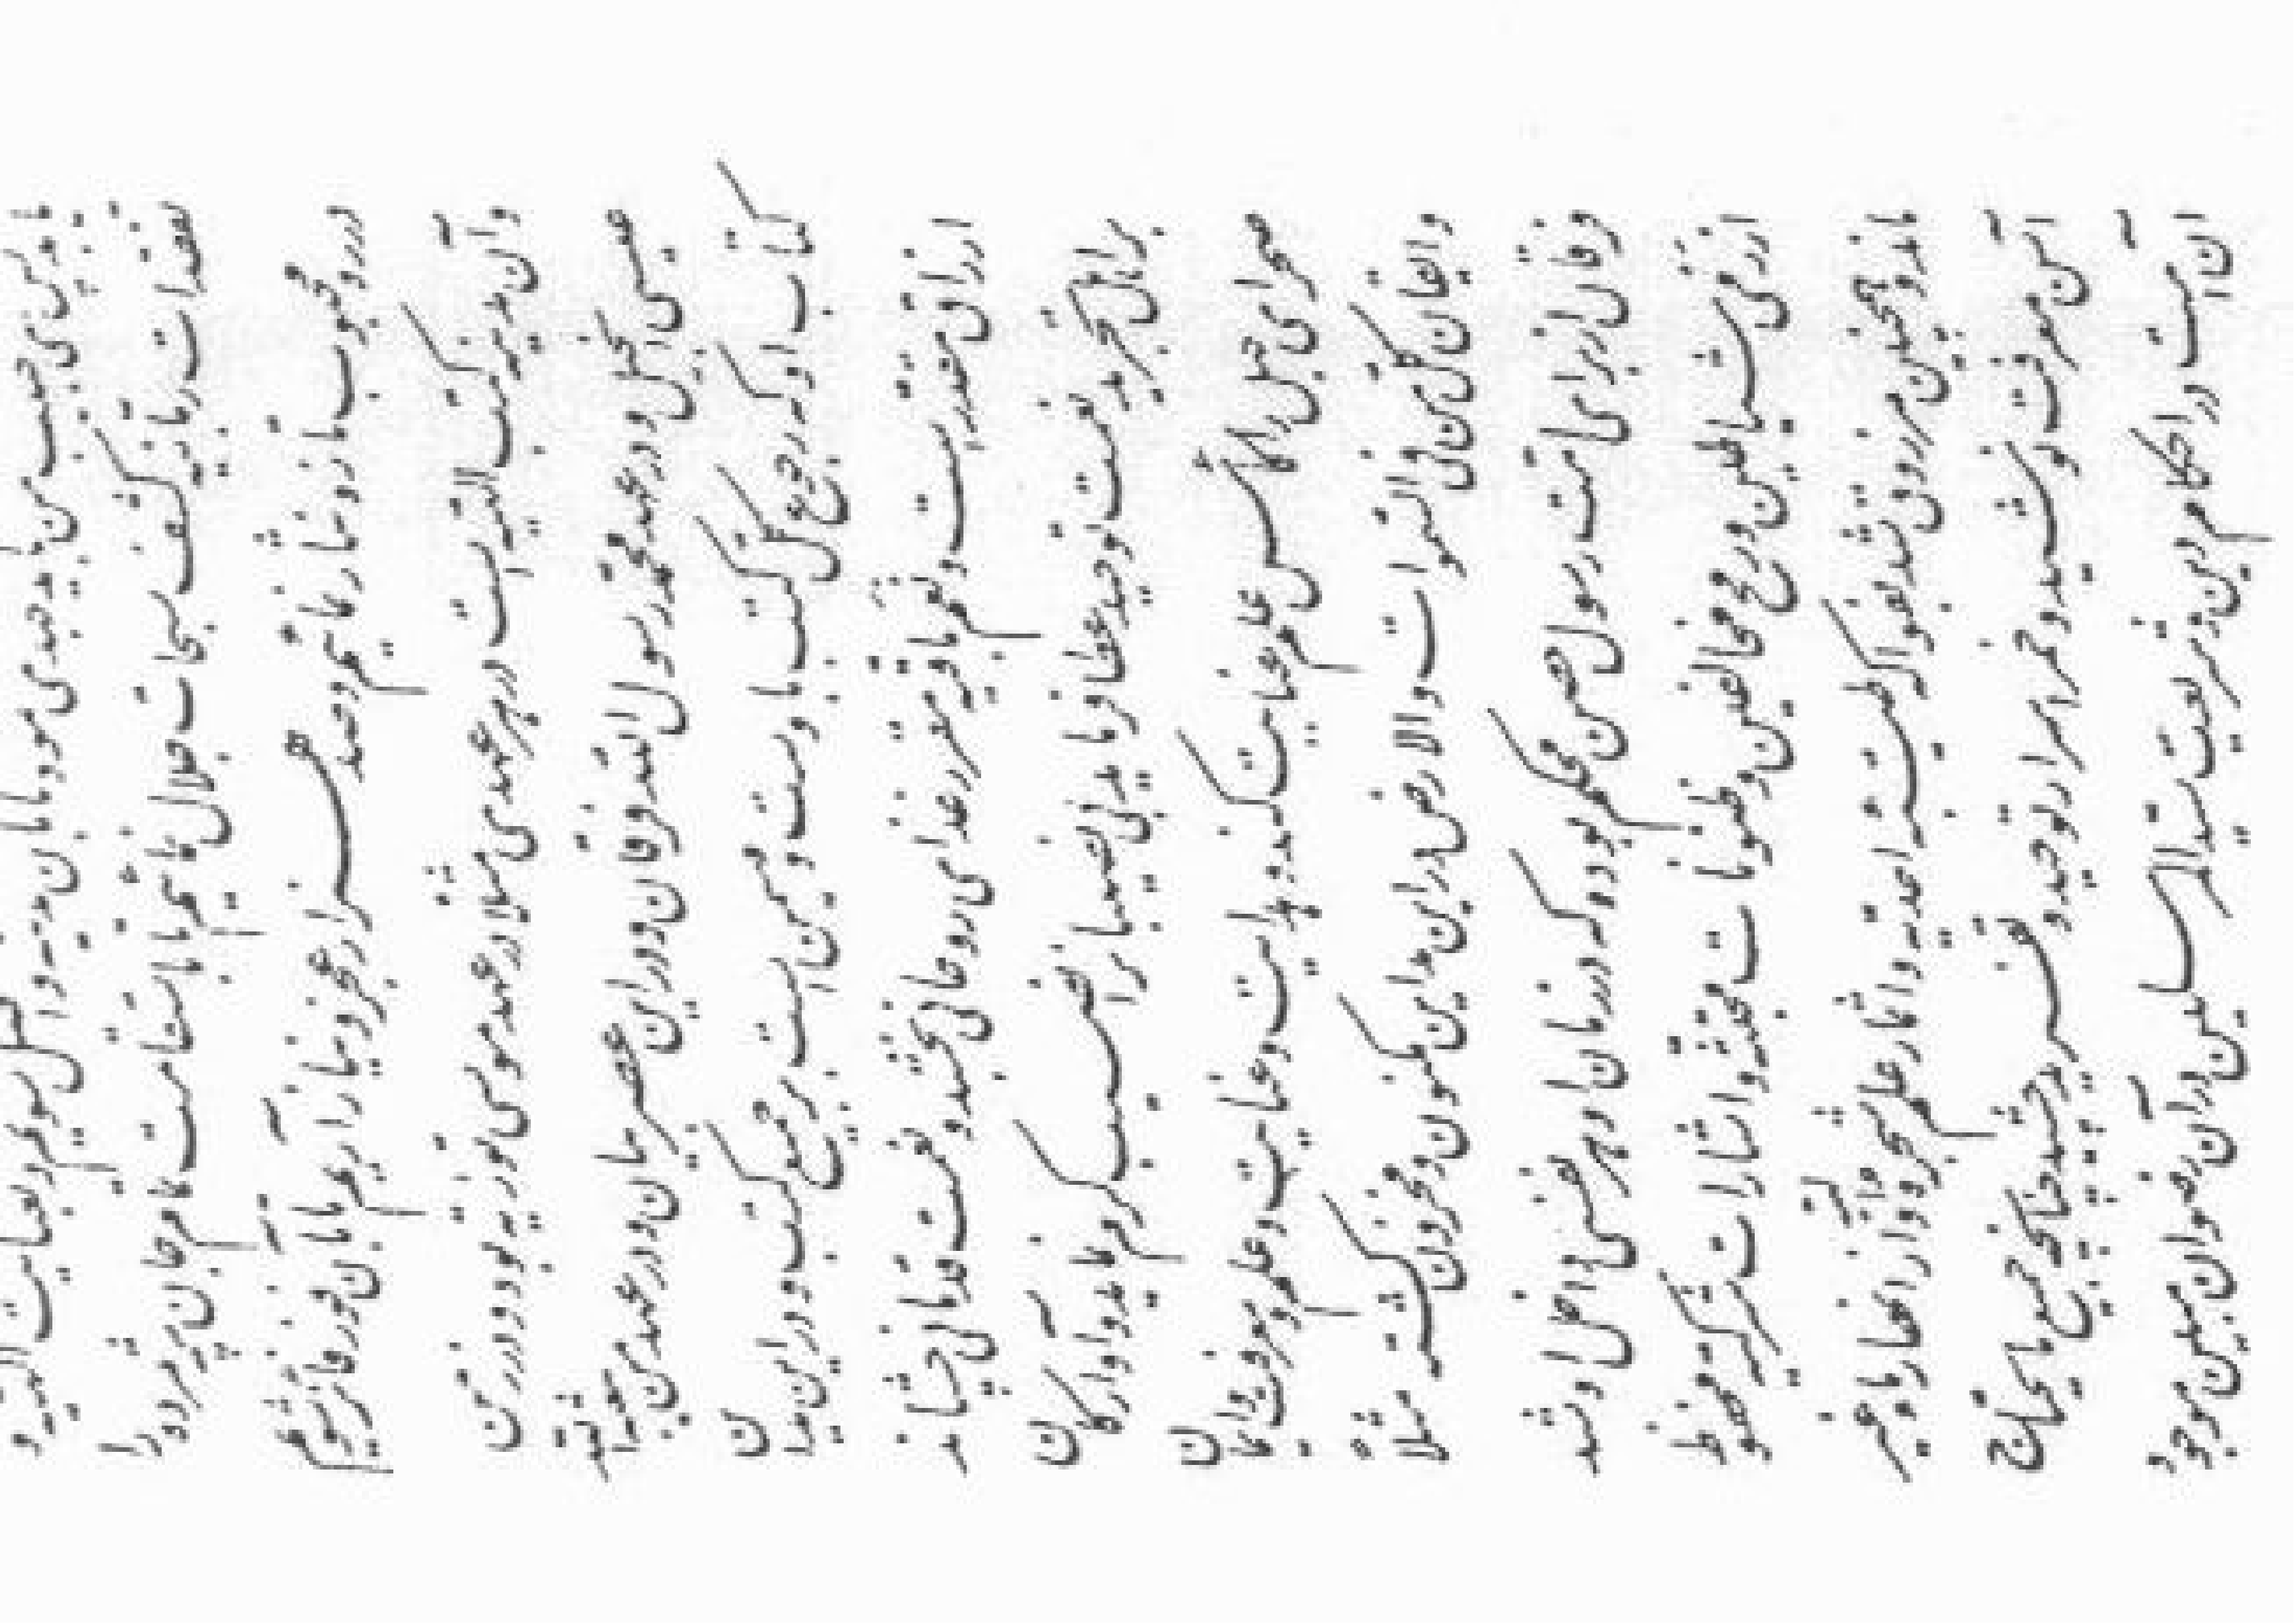 پس ای حبیب من باید جهدی نمود تا بآن مدینه واصل شویم و بعنایت الهیه و
تفقدات ربانیه کشف سبحات جلال نمائیم تا باستقامت تمام جان پژمرده را
در ره محبوب تازه نثار نمائیم و صد هزار عجز و نیاز آریم تا بآن فوز فائز شویم
و آن مدینه کتب الهیه است در هر عهدی مثلا در عهد موسی توریة بود و در زمن
عیسی انجیل و در عهد محمد رسول الله فرقان و در این عصر بیان و در عهد من یبعثه الله
کتاب او که رجوع کل کتب باوست و مهیمن است بر جمیع کتب و در این مداین
ارزاق مقدر است و نعم باقیه مقرر غذای روحانی بخشد و نعمت قدمانی چشاند
بر اهل تجرید نعمت توحید عطا فرماید بی نصیبانرا نصیب کرم نماید و آوارگان
صحرای جهل را کأس علم عنایت کند و هدایت و عنایت و علم و معرفت و ایمان
و ایقان کل من فی السموات و الارض در این مداین مکنون و مخزون گشته مثلا
فرقان از برای امت رسول حصن محکم بوده که در زمان او هر نفسی داخل او شد
از رمی شیاطین و رمح مخالفین و ظنونات مجتثه و اشارات شرکیه محفوظ
ماند و همچنین مرزوق شد بفواکه طیبه احدیه و اثمار علم شجره الهیه و از انهار ماء غیر
آسن معرفت نوشید و خمر اسرار توحید و تفرید چشید چنانچه جمیع ما یحتاج
آن امت در احکام دین و شریعت سید المرسلین در آن رضوان مبین موجود